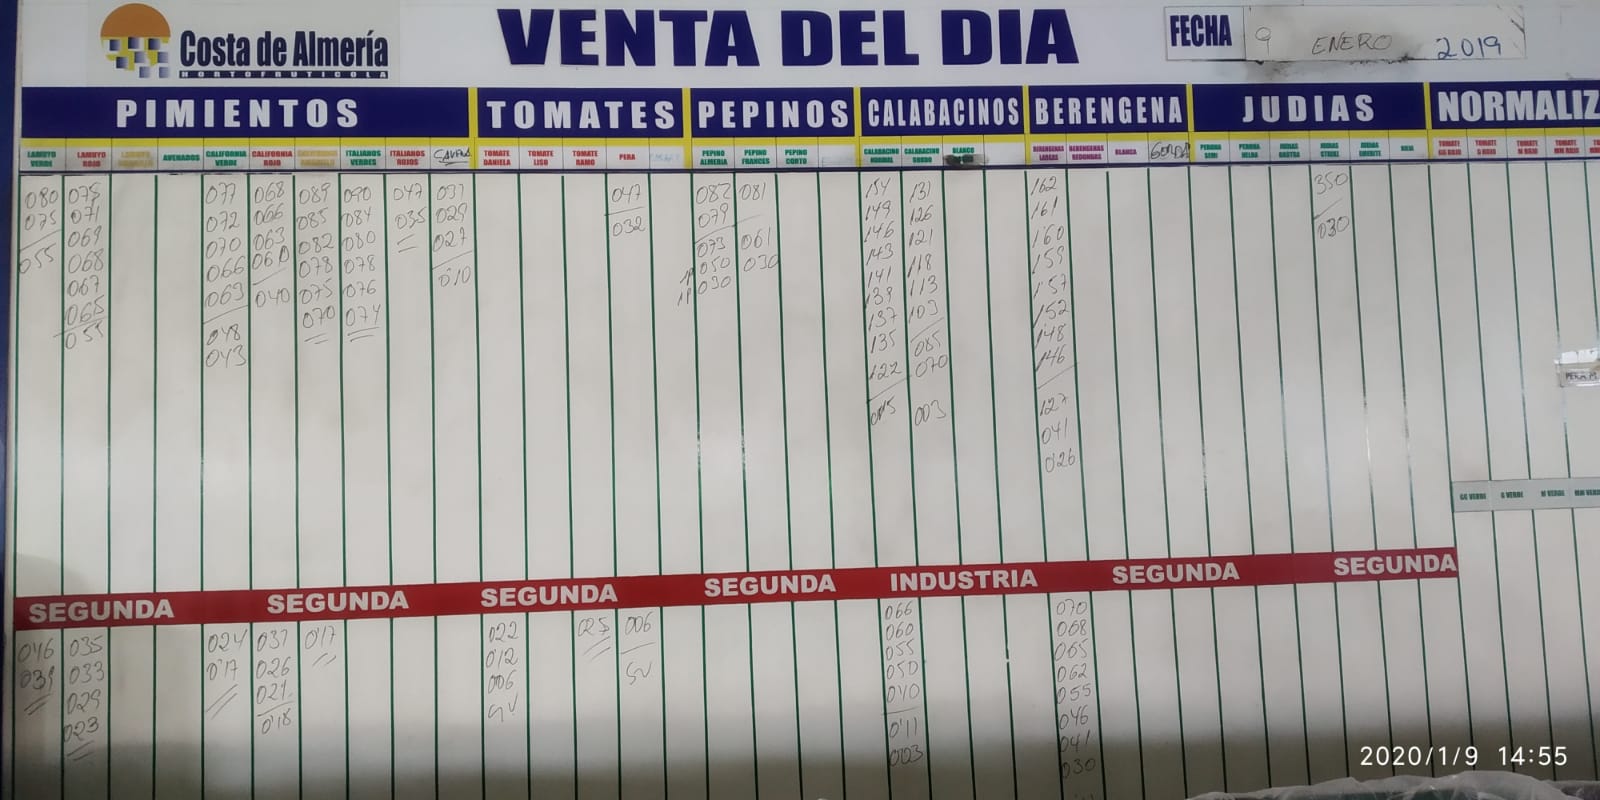 Costa de Almería
HORTOFRUTICOLA
VENTA DEL DIA
FECHA 9 ENERO 2019
PIMIENTOS TOMATES PEPINOS CALABACINOS BERENGENA JUDIAS NORMALIZ
LAMUYO VERDE
LAMUYO ROJO
AVENADOS
CALIFORNIA VERDE
CALIFORNIA ROJO
ITALIANOS VERDES
ITALIANOS ROJOS
TOMATE DANIELA
TOMATE LISO
TOMATE RAMO
PERA
PEPINO ALMERIA
PEPINO FRANCES
PEPINO CORTO
CALABACINO NORMAL
CALABACINO GORDO
BLANCO
BERENGENAS LARGAS
BERENGENAS REDONDAS
BLANCA
GORDA
PERONA SEMI
PERONA HELDA
ROJA
080
075
055
075
071
069
068
067
065
055
077
072
070
066
063
048
043
068
066
063
060
040
089
085
082
078
075
070
090
084
080
078
076
074
047
035
037
029
027
010
047
032
082
079
073
1P 050
1P 030
081
061
030
154
149
146
143
141
139
137
135
122
015
131
126
121
118
113
103
085
070
003
162
161
160
159
157
152
148
146
127
041
026
350
030
GG VERDE G VERDE M VERDE MM VERDE
SEGUNDA SEGUNDA SEGUNDA SEGUNDA INDUSTRIA SEGUNDA SEGUNDA
046
039
035
033
029
023
024
017
037
026
021
018
017
022
012
006
SV
025
006
SV
066
060
055
050
040
011
003
070
068
065
062
055
046
041
030
2020/1/9 14:55